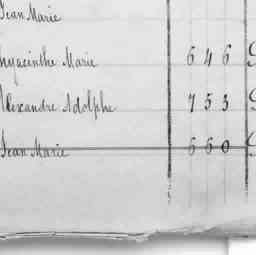 Jean Marie
hyacinthe Marie 646
Alexandre Adolphe 753
Jean Marie 660